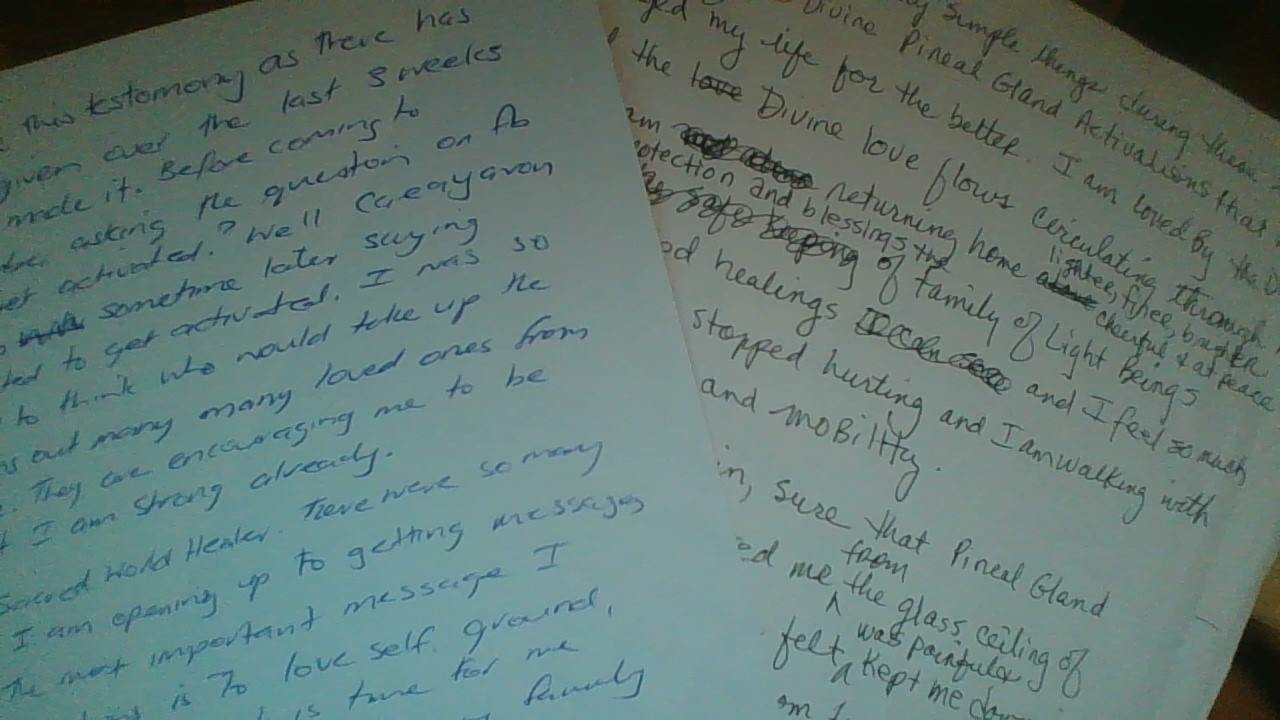 this testomony as there has
given over the last 3 weeks
made it. Before coming to
asking the question on fb
get activated.? We'll
sometime later saying
to get activated. I was so
to think who would take up the
out many many loved ones from
They are encouraging me to be
I am strong already.
Sacred World Healer. There were so many
I am opening up to getting messages
The most important message I
is To love self. ground,
is time for me
family
simple things during these
Divine Pineal Gland Activations that
my life for the better. I am loved by the D
the love Divine love flows circulating through
am returning home lighter, freer, brighter
cheerful & at peace
protection and blessings the
safe keeping of family of Light Beings
healings and I feel so much
stopped hurting and I am walking with
and mobility.
in, sure that Pineal Gland
ed me from the glass ceiling of
felt was painful &
kept me down